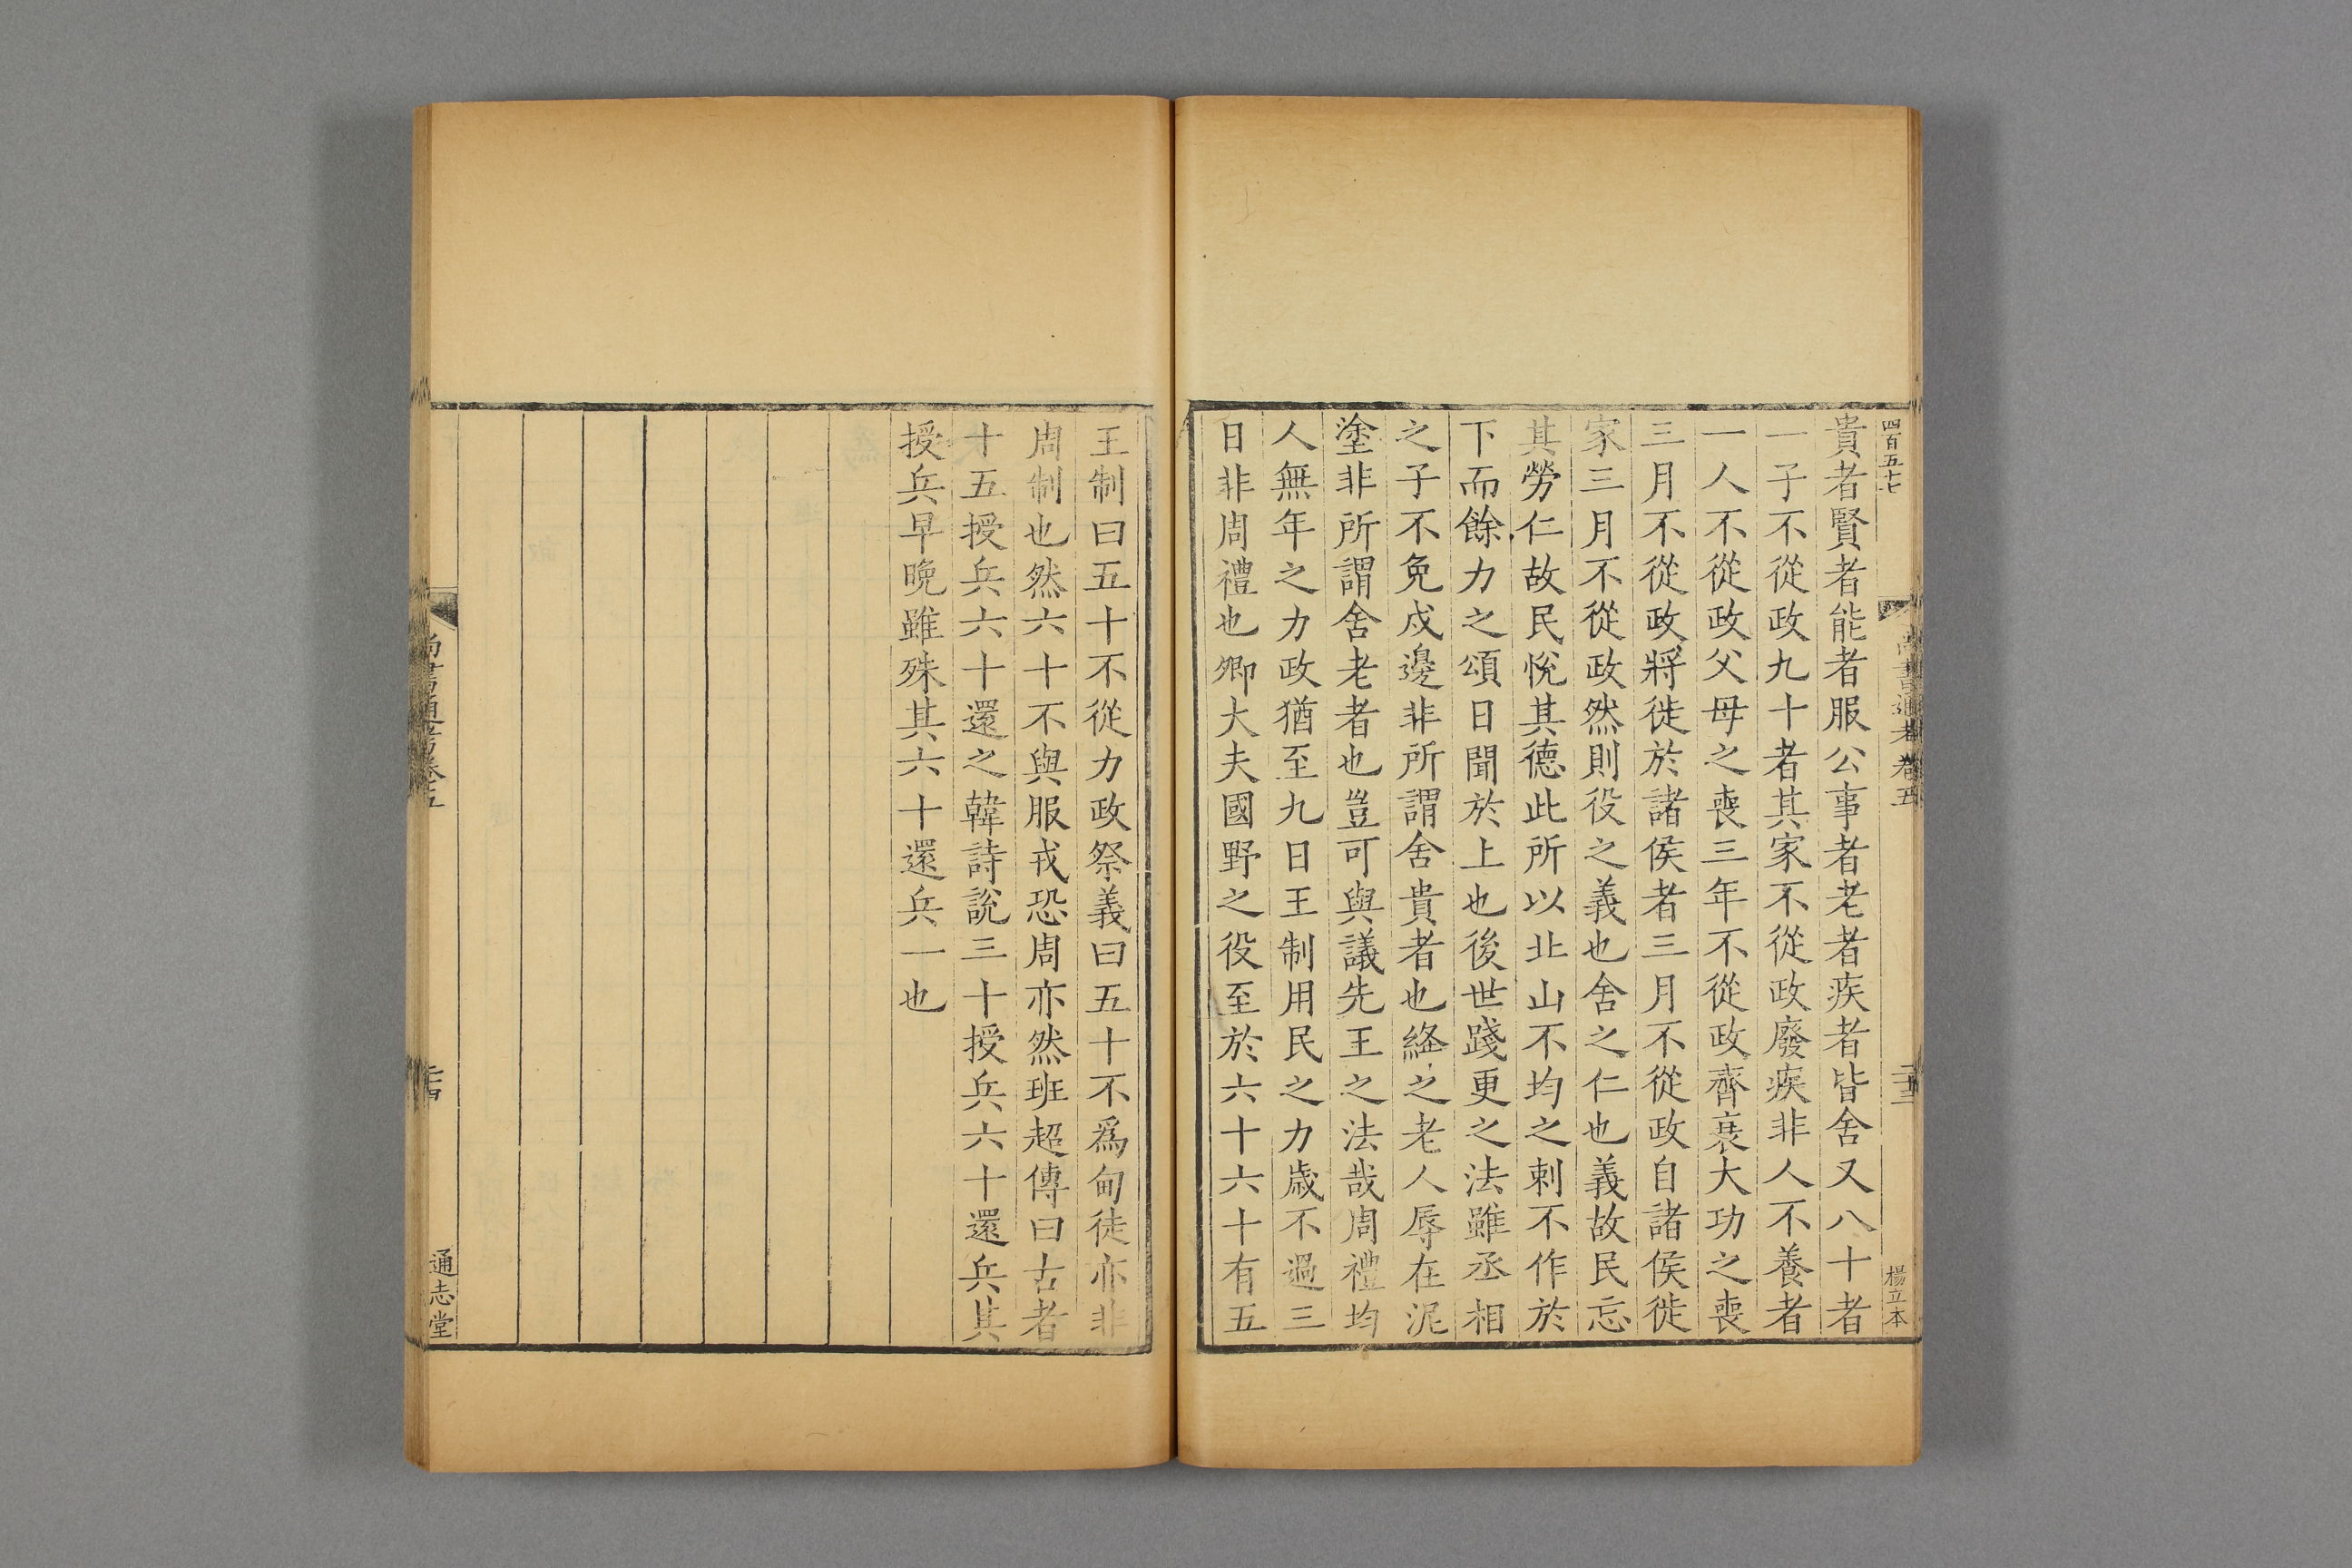 四百五十七
尚書通考卷五
二十三
楊立本
貴者賢者能者服公事者老者疾者皆舍又八十者
一子不從政九十者其家不從政廢疾非人不養者
一人不從政父母之喪三年不從政齊衰大功之喪
三月不從政將徙於諸侯者三月不從政自諸侯徙
家三月不從政然則役之義也舍之仁也義故民忘
其勞仁故民悅其德此所以北山不均之刺不作於
下而餘力之頌日聞於上也後世踐更之法雖丞相
之子不免戍邊非所謂舍貴者也絳之老人辱在泥
塗非所謂舍老者也豈可與議先王之法哉周禮均
人無年之力政猶至九日王制用民之力歲不過三
日非周禮也鄉大夫國野之役至於六十六十有五
王制曰五十不從力政祭義曰五十不爲甸徒亦非
周制也然六十不與服戎恐周亦然班超傳曰古者
十五授兵六十還之韓詩說三十授兵六十還兵其
授兵早晚雖殊其六十還兵一也
尚書通考卷五
二十四
通志堂